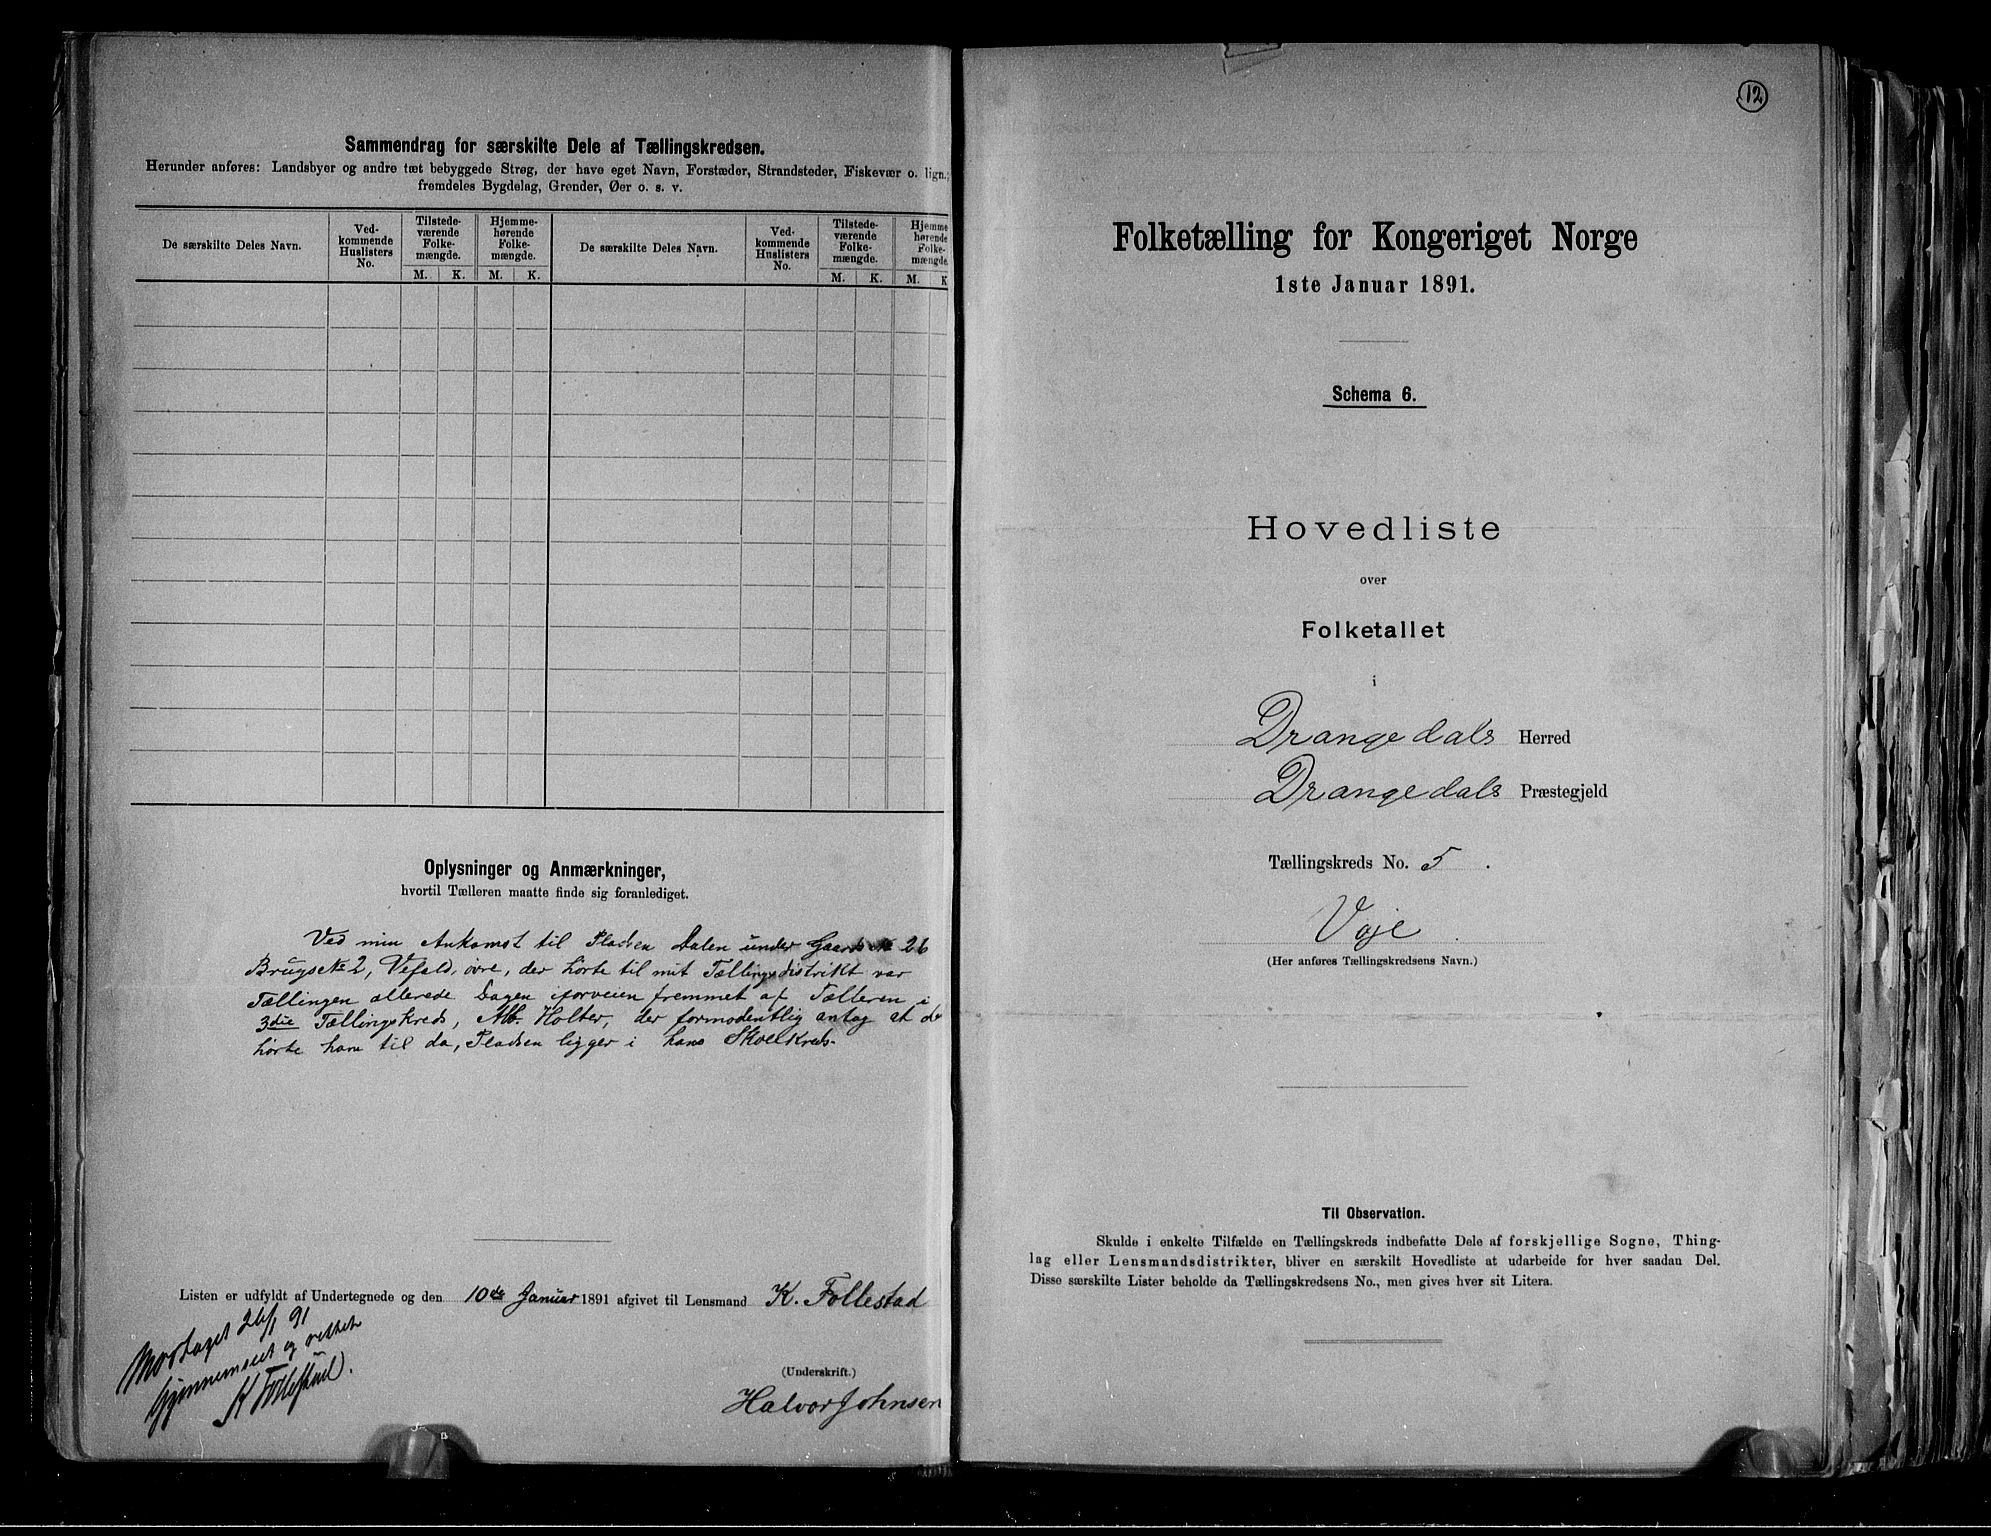 Sammendrag for særskilte Dele af Tællingskredsen.
Herunder anføres: Landsbyer og andre tæt bebyggede Strøg, der have eget Navn, Forstæder, Strandsteder, Fiskevær o. lign.;
fremdeles Bygdelag, Grender, Øer o. s. v.
De særskilte Deles Navn.
Ved-
kommende
Huslisters
No.
Tilstede-
værende
Folke-
mængde.
Hjemme-
hørende
Folke-
mængde.
De særskilte Deles Navn.
Ved-
kommende
Huslisters
No.
Tilstede-
værende
Folke-
mængde.
Hjemme-
hørende
Folke-
mængde.
M. K. M. K. M. K. M. K
Oplysninger og Anmærkninger,
hvortil Tælleren maatte finde sig foranlediget.
Ved min Ankomst til Pladsen Dalen under Gaards № 26
Brugs № 2, Vefald, øvre, der hørte til mit Tællingsdistrikt var
Tællingen allerede Dagen iforveien fremmet af Tælleren i
3die Tællingskreds, Holter, der formodentlig antog at de
hørte ham til da, Pladsen ligger i hans Skolekreds.
Listen er udfyldt af Undertegnede og den 10de Januar 1891 afgivet til Lensmand K. Follestad
(Underskrift.)
Halvor Johnsen
Modtaget 26/1 91
Gjennemseet og rettet
K Follestad.
12
Folketælling for Kongeriget Norge
1ste Januar 1891.
Schema 6.
Hovedliste
over
Folketallet
i
Drangedals Herred
Drangedals Præstegjeld
Tællingskreds No. 5.
Voje
(Her anføres Tællingskredsens Navn.)
Til Observation.
Skulde i enkelte Tilfælde en Tællingskreds indbefatte Dele af forskjellige Sogne, Thing-
lag eller Lensmandsdistrikter, bliver en særskilt Hovedliste at udarbeide for hver saadan Del.
Disse særskilte Lister beholde da Tællingskredsens No., men gives hver sit Litera.